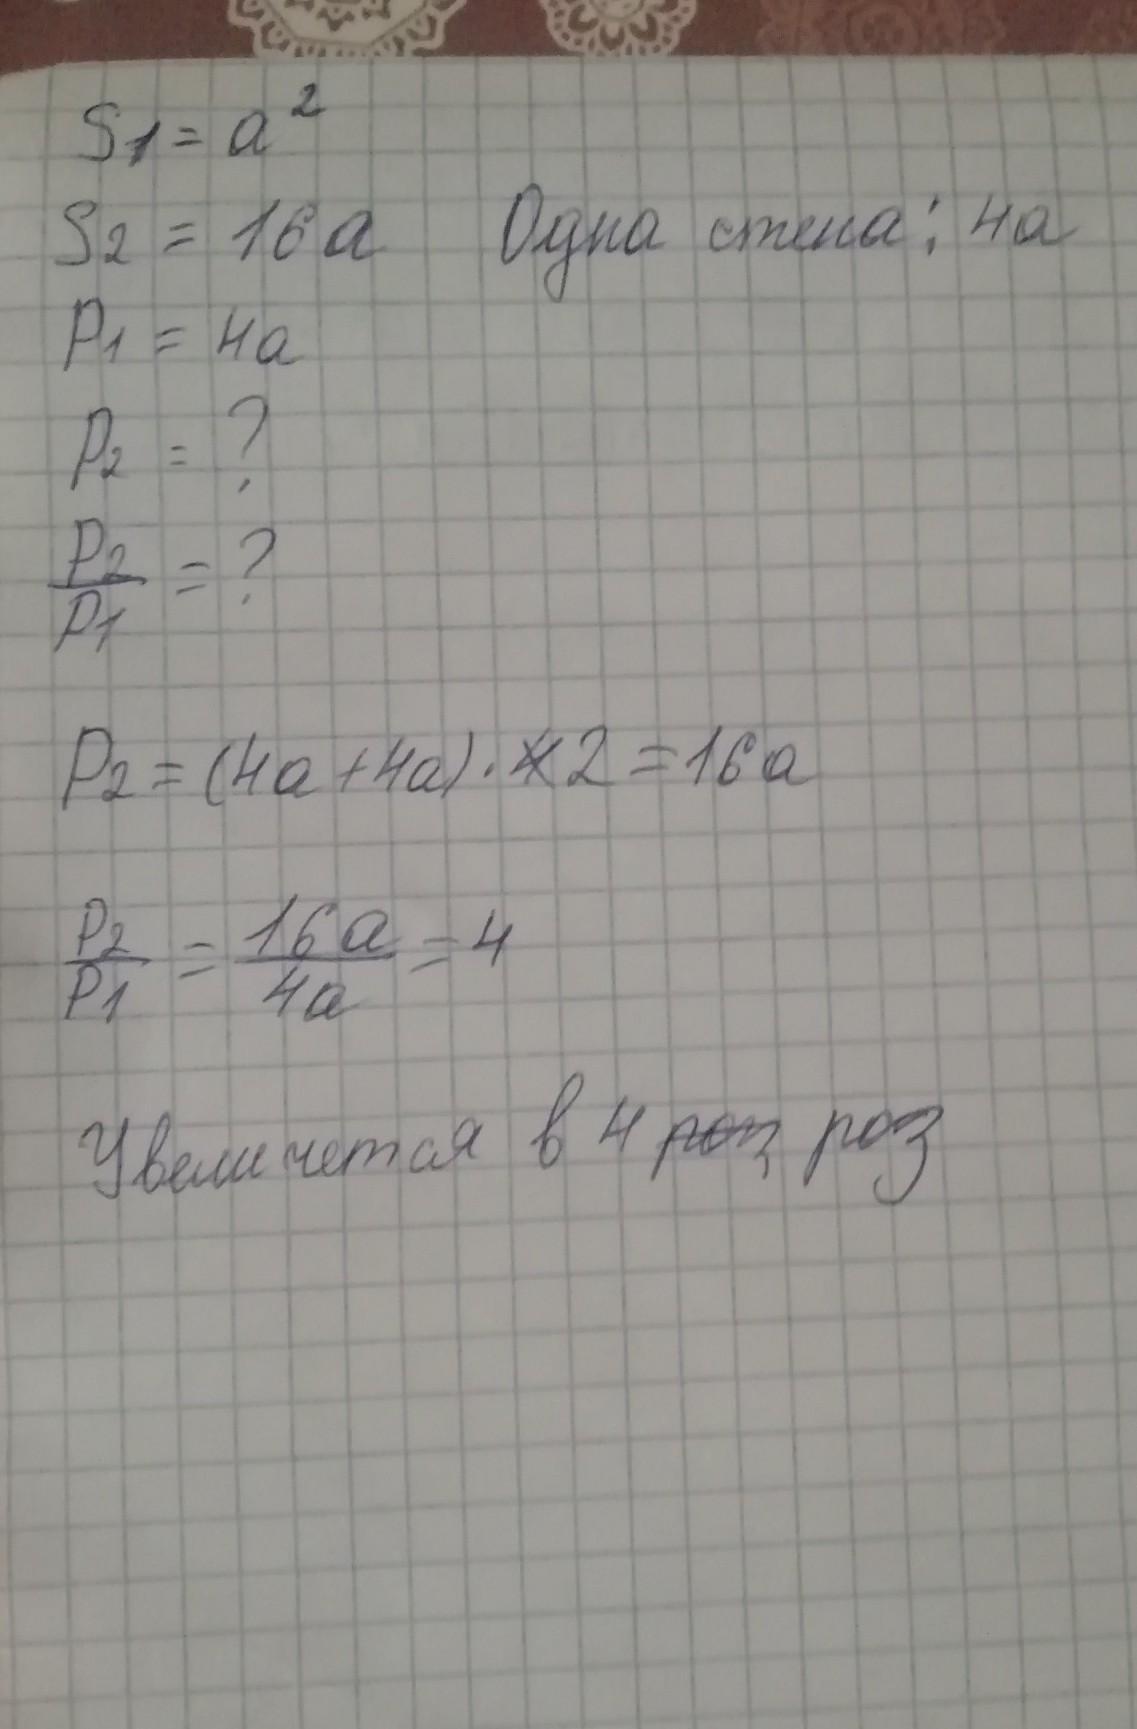 S1 = a²
S2 = 16a Одна стена: 4a
P1 = 4a
P2 = ?
P2/P1 = ?
P2 = (4a+4a)·2 = 16a
P2/P1 = 16a/4a = 4
Увеличется в 4 роз